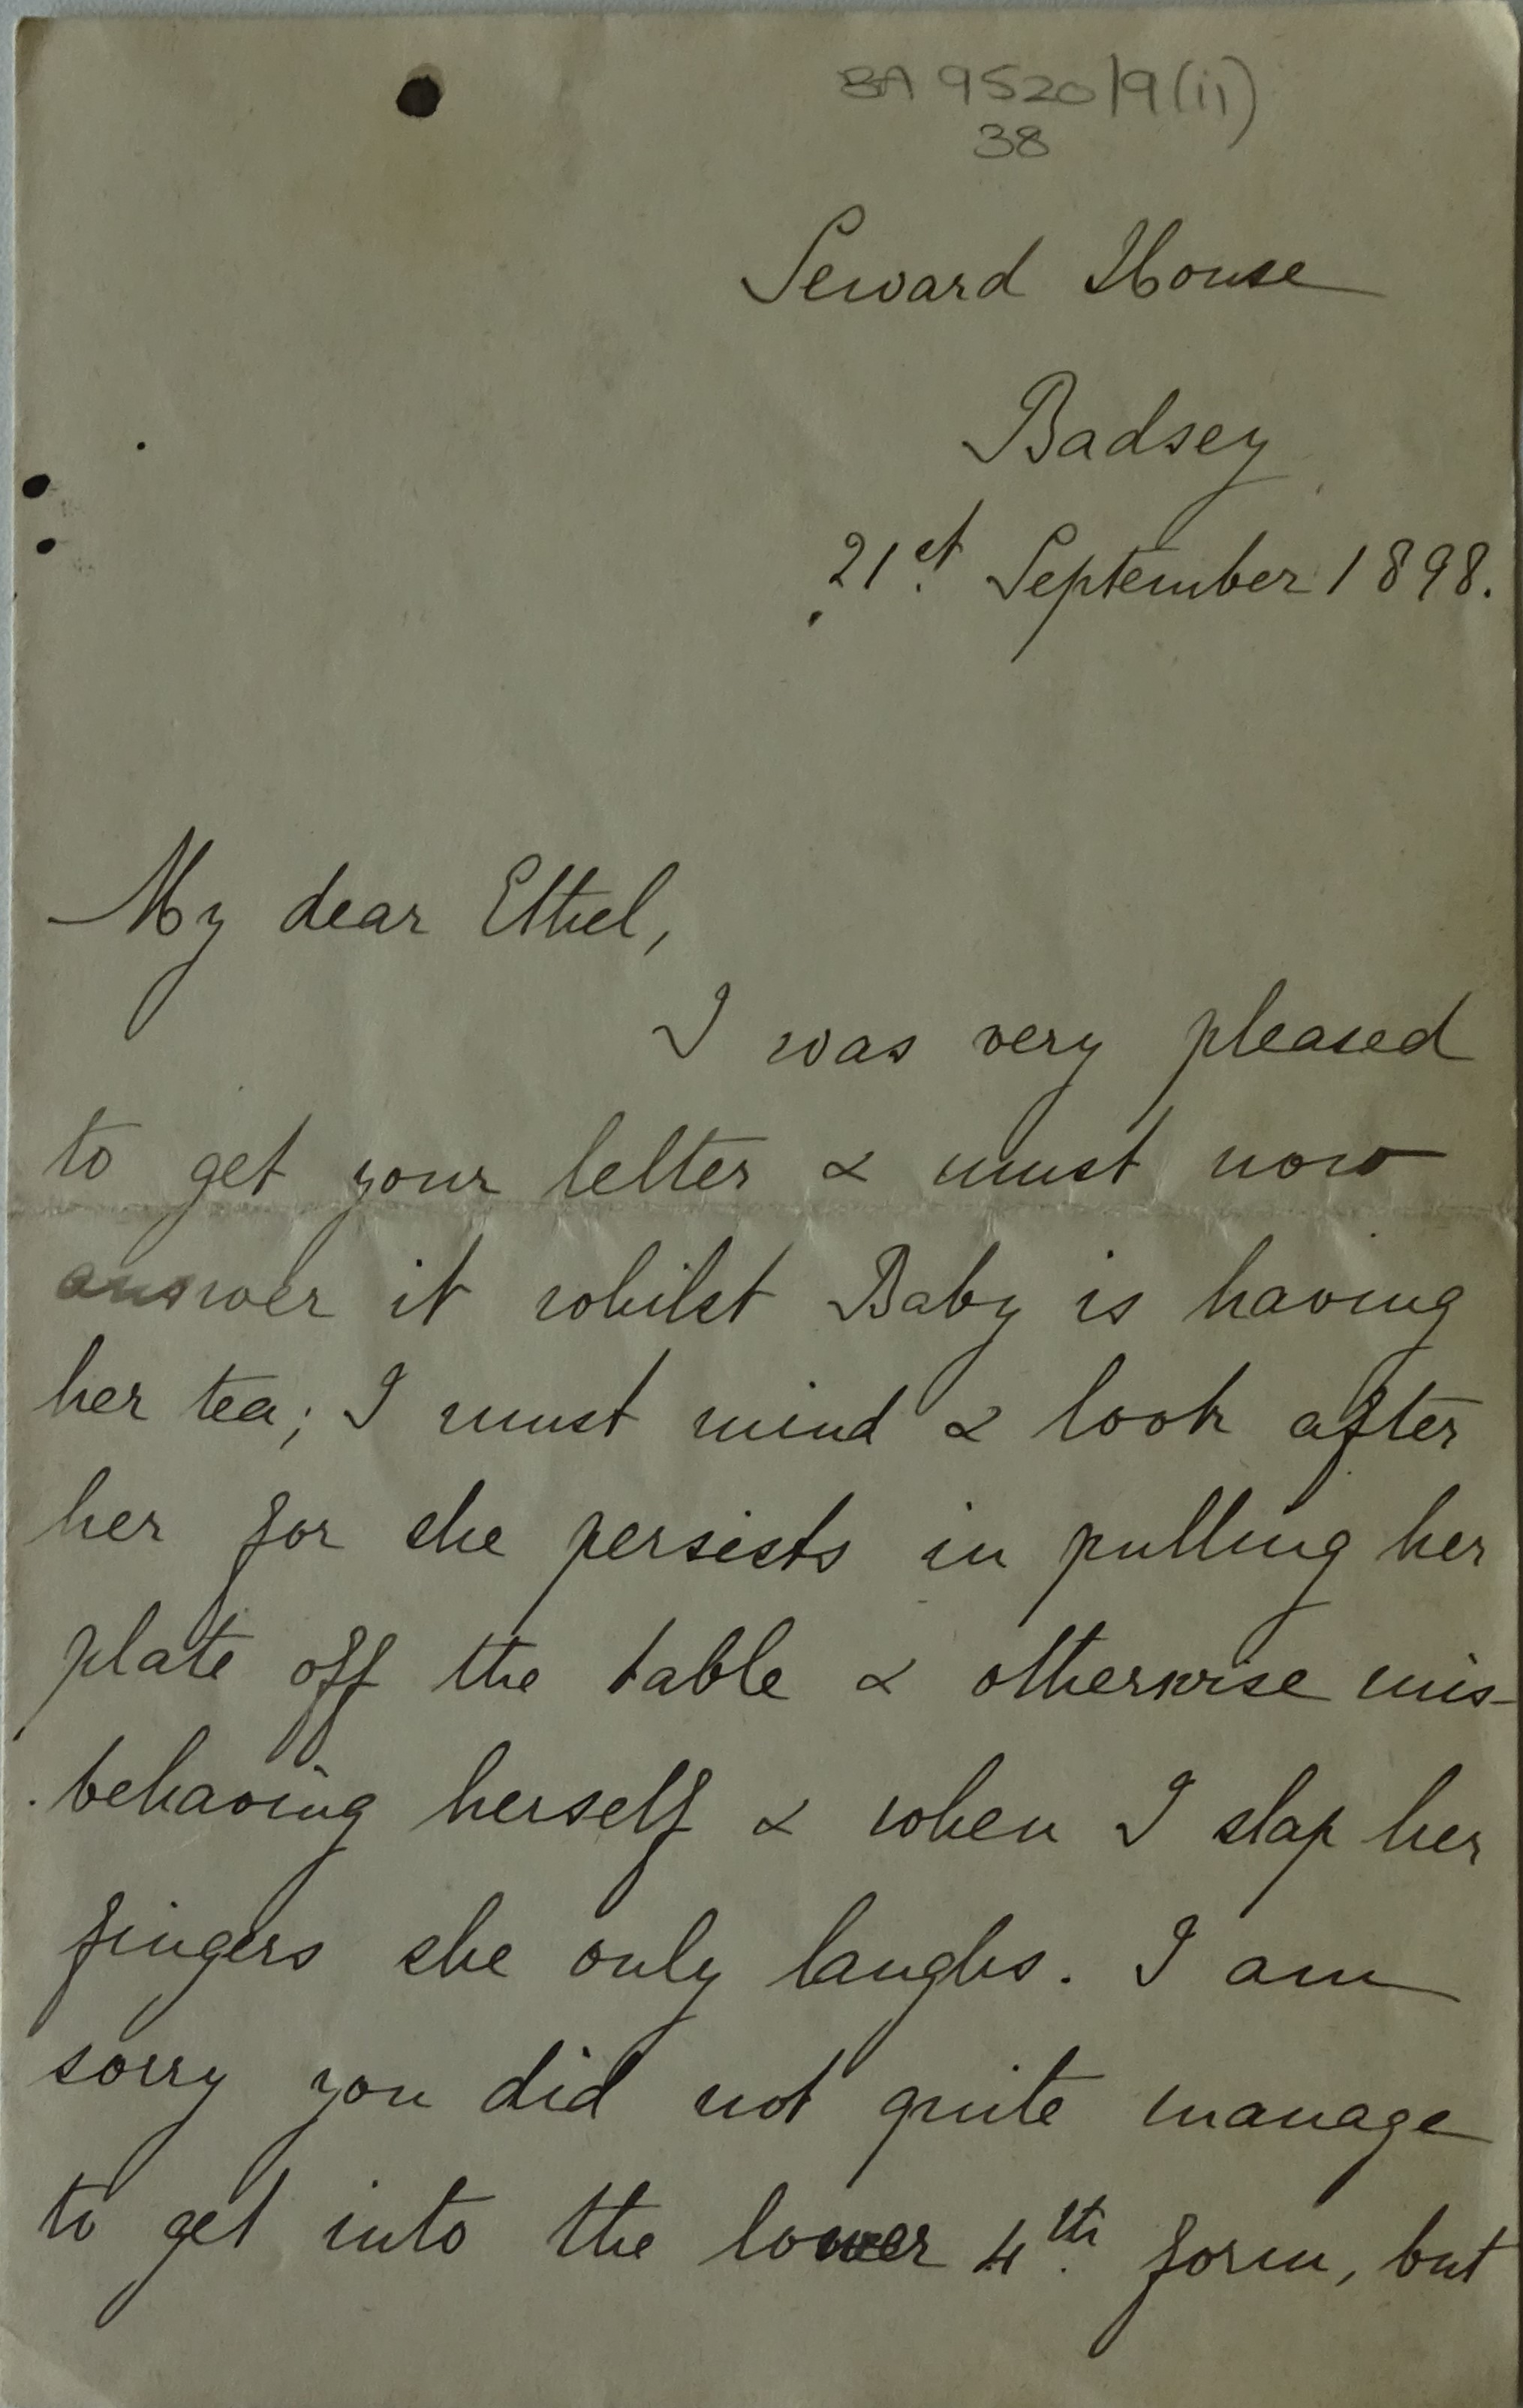 BA 9520/9(ii)
38
Seward House
Badsey
21st September 1898.
My dear Ethel,
I was very pleased
to get your letter & must now
answer it whilst Baby is having
her tea; I must mind & look after
her for she persists in pulling her
plate off the table & otherwise mis-
behaving herself & when I slap her
fingers she only laughs. I am
sorry you did not quite manage
to get into the lower 4th form, but